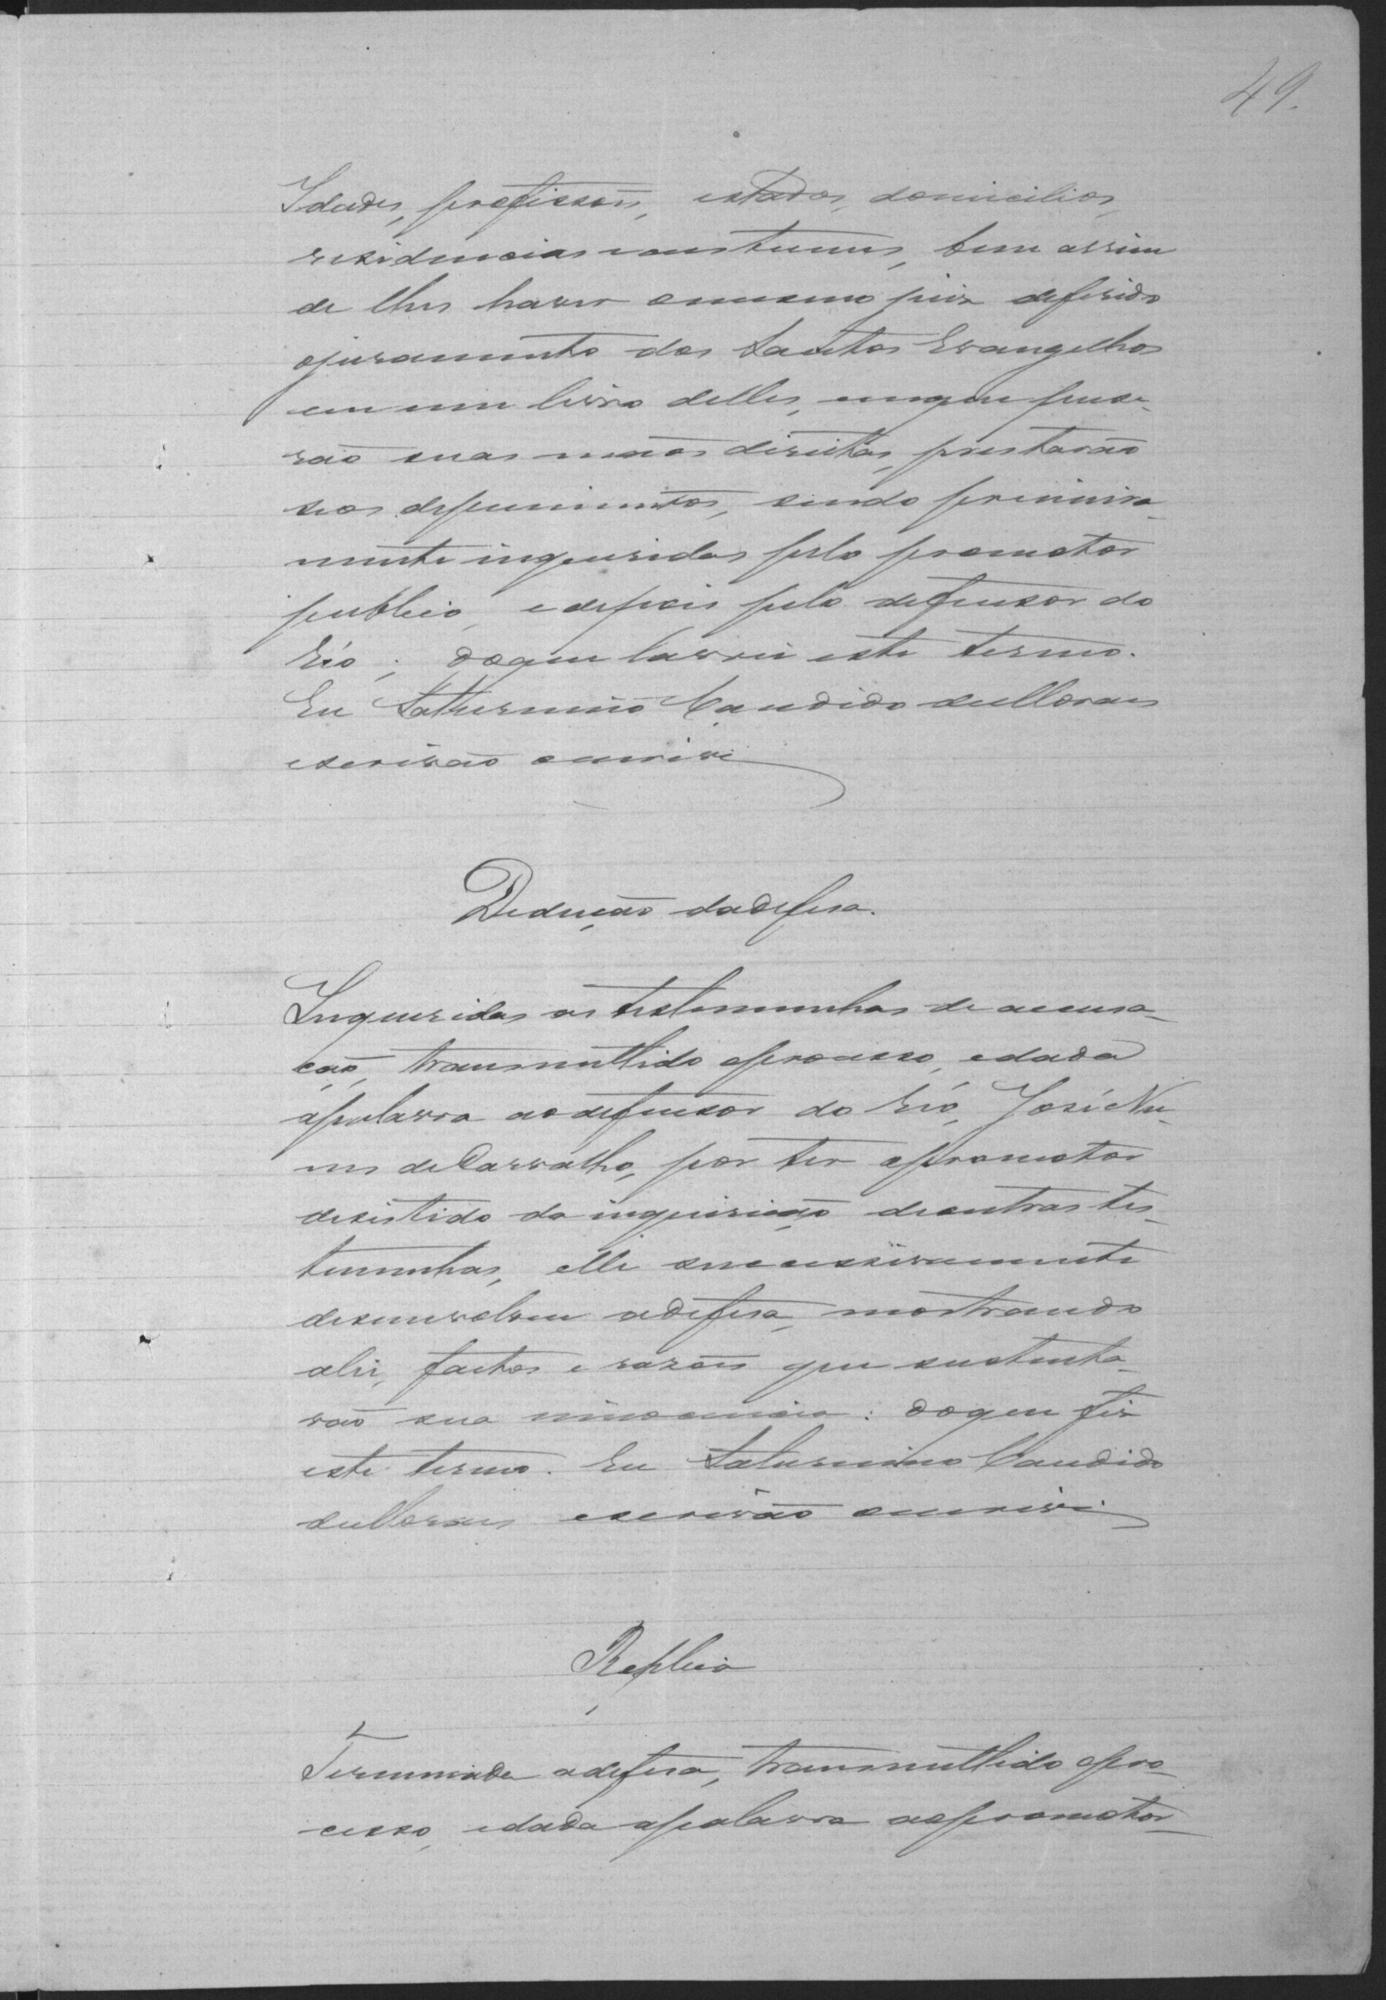 49.
Idades, profissões, estados, domicilios,
residencias e costumes, bem assim
de lhes haver o mesmo juiz deferido
o juramento dos Santos Evangelhos
em um livro delles, em que puse-
rão suas mãos direitas, prestarão
seos depuimentos, sendo primeira-
mente inqueridas pelo promotor
publico, e depois pelo defensor do
Réo; do que lavrei este termo.
Eu Saturnino Candido de Moraes
escrivão escrivi
Dedução da defesa.
Inqueridas as testemunhas de accusa-
ção, transmettido o processo, e dada
a palavra ao defensor do Réo, José Nu-
nes de Carvalho, por ter o promotor
desistido da inquirição de outras tes-
temunhas, elle successivamente
desenvolveu a defesa, mostrando
a lei, factos e rasões que sustenta-
vão sua innocencia: do que fis
este termo. Eu Saturnino Candido
de Moraes escrivão escrivi
Replica
Terminada a defesa, transmettido o pro-
cesso, e dada a palavra ao promotor